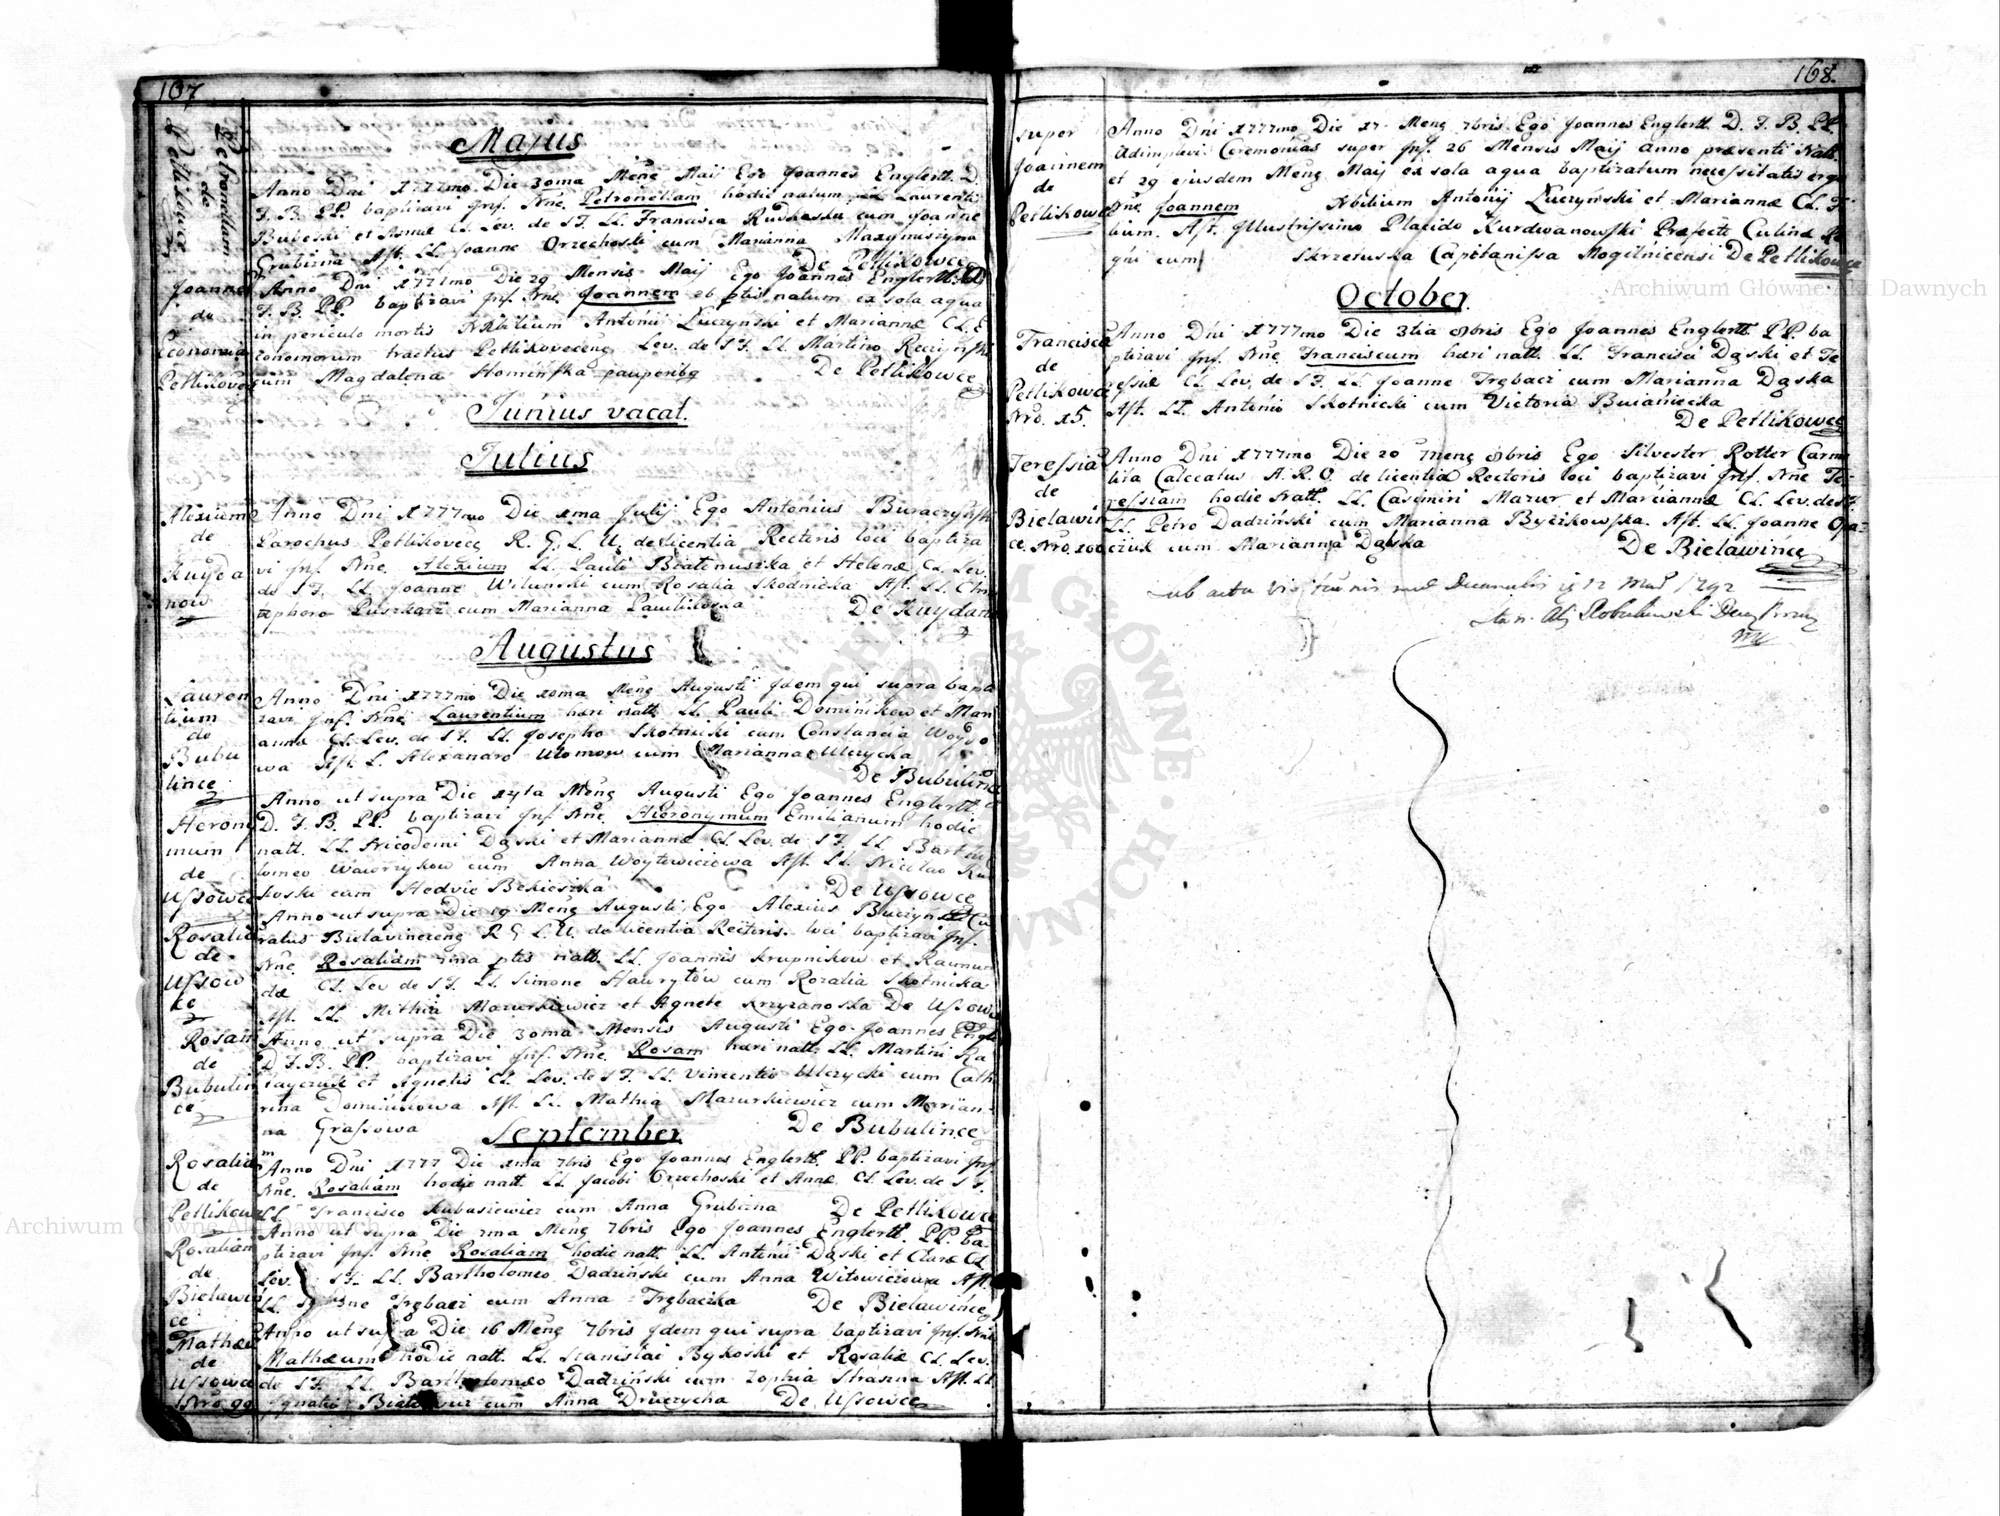 167
Petronellam
de
Petlikowce
Majus
Anno Dni 1777mo Die 30ma Mens Maij Ego Joannes Englertt. D.
F. B. PP. baptizavi Inf. Nne. Petronellam hodie natum Laurentii
Bubeski et Annæ CL. Lev. de S F. LL. Francisca Rudkoska cum Joanne
Grubizna Ast. LL. Joanne Orzechoski cum Marianna
De Petlikowce
Joannem
de
Economia
Petlikowce
Anno Dni 1777mo Die 29 Mensis Maij Ego Joannes Englertt. D.
F. B. PP. baptizavi Inf. Nne. Joannem natum ex sola aqua
in periculo mortis Nobilium Antonii Luczynski et Mariannæ CL. E
conomorum tractus Petlikovecens Lev. de S F. LL. Martino
cum Magdalena Hominska
De Petlikowce
Junius vacat.
Julius
Alexium
de
Kuyda
now
Anno Dni 1777mo Die 1ma Julij Ego Antonius Buraczynsk
Parochus Petlikovece R. G. L. U. de licentia Rectoris loci baptiza
vi Inf. Nne. Alexium LL. Pauli Bialenuszka et Helenæ CL. Lev.
de S F. LL. Joanne Wilunski cum Rosalia Skodnicka Ast. LL. Chri
stophoro Puszkarz cum Marianna
De Kuydan
Augustus
Lauren
tium
de
Bubu
lince
Anno Dni 1777mo Die 10ma Mens Augusti Idem qui supra bapti
zavi Inf. Nne. Laurentium heri natt. LL. Pauli Dominikow et Mari
annæ CL. Lev. de S F. LL. Josepho Skotnicki cum Constancia Woydo
wa Ast. L. Alexandro Ulomow cum Marianna Ulczycka
De Bubulince
Heronÿ
mum
de
Ussowce
Anno ut supra Die 14ta Mens Augusti Ego Joannes Englertt.
D. F. B. PP. baptizavi Inf. Nne. Hieronymum Emilianum hodie
natt. LL. Nicodemi Dąski et Mariannæ CL. Lev. de S F. LL. Bartho
lomeo Wawrzykow cum Anna Woytowiczowa Ast. LL. Nicolao Rud
koski cum Hedvie Bekieszka
De Ussowce
Rosaliam
de
Ussow
ce
Anno ut supra Die 19 Mens Augusti Ego Alexius Buczyn Cu
ratus Bielavincens R G L. U. de licentia Rectoris loci baptizavi Inf.
Nne. Rosaliam natt. LL. Joannis Krupnikow et Raimun
dæ CL. Lev de S F. LL Simone Hawrytów cum Rozalia Skotnicka
Ast. LL. Mathia Mazurkiewicz et Agnete Krzyzanoska De Ussowce
Rosam
de
Bubulin
ce
Anno ut supra Die 30ma Mensis Augusti Ego Joannes Engle
D. F. B. PP. baptizavi Inf. Nne. Rosam heri natt. LL. Martini Ra
tayczuk et Agnetis CL. Lev. de S F. LL. Vincentio Ulczycki cum Cathe
rina Dominikowa Ast. LL. Mathia Mazurkiewicz cum Marian-
na Grassowa
De Bubulince
September
Rosaliam
de
Petlikowce
Anno Dni 1777 Die 1ma 7bris Ego Joannes Englertt. PP. baptizavi Inf.
Nne. Rosaliam hodie natt. LL Jacobi Orzechoski et Annæ CL. Lev. de S F.
LL. Francisco Kubasiewicz cum Anna Grubizna De Petlikowce
Rosaliam
de
Bielawin
ce
Anno ut supra Die 7ma Mens 7bris Ego Joannes Englertt. PP. ba-
ptizavi Inf. Nne Rosaliam hodie natt. LL. Antonii Dąski et Claræ CL
Lev. S F. LL. Bartholomeo Dadziński cum Anna Witowiczowa Ast.
LL. Trębacz cum Anna Trębaczka De Bielawińce
Mathæum
de
Ussowce
Nro 99
Anno ut supra Die 16 Mens 7bris Idem qui supra baptizavi Inf. Nne
Mathæum hodie natt. LL. Stanislai Bykoski et Rosaliæ CL. Lev.
de S F. LL. Bartholomeo Dadziński cum Zophia Strasna Ast. LL
Ignatio cum Anna Druczycha De Ussowce
168.
super
Joannem
de
Petlikowce
Anno Dni 1777mo Die 17 Mens 7bris Ego Joannes Englertt. D. F. B. PP.
Adimplevi Ceremonias super Inf. 26 Mensis Maij anno præsenti Natt.
et 29 ejusdem Mens Maij ex sola aqua baptizatum necessitatis ergo
Nne Joannem Nobilium Antonij Luczynski et Mariannæ CL. F
bium. Ast. Illustrissimo Placido Kurdwanowski Præfecto Culinæ Re
gni cum Skrzetuska Capitanissa Mogilnicensi De Petlikowce
October
Francisca
de
Petlikowce
Nro. 15.
Anno Dni 1777mo Die 3tia 8bris Ego Joannes Englertt. PP. ba
ptizavi Inf. Nne. Franciscum heri natt. LL. Francisci Dąski et Te
ressiæ CL Lev. de S F. LL Joanne Trębacz cum Marianna Dąska
Ast. LL. Antonio Skotnicki cum Victoria Buianiecka
De Petlikowce
Teressia
de
Bielawin
ce. Nro. 100
Anno Dni 1777mo Die 20 Mens 8bris Ego Silvester Rotter Carme
lita Calceatus A. R. O. de licentia Rectoris loci baptizavi Inf. Nne Te
ressiam hodie Natt. LL. Casimiri Mazur et Mariannæ CL. Lev. de S F.
LL. Petro Dadziński cum Marianna Byczkowska. Ast. LL. Joanne Opa-
czuk cum Marianna Dąbska
De Bielawińce
Archiwum Główne Akt Dawnych
Archiwum Główne Akt Dawnych